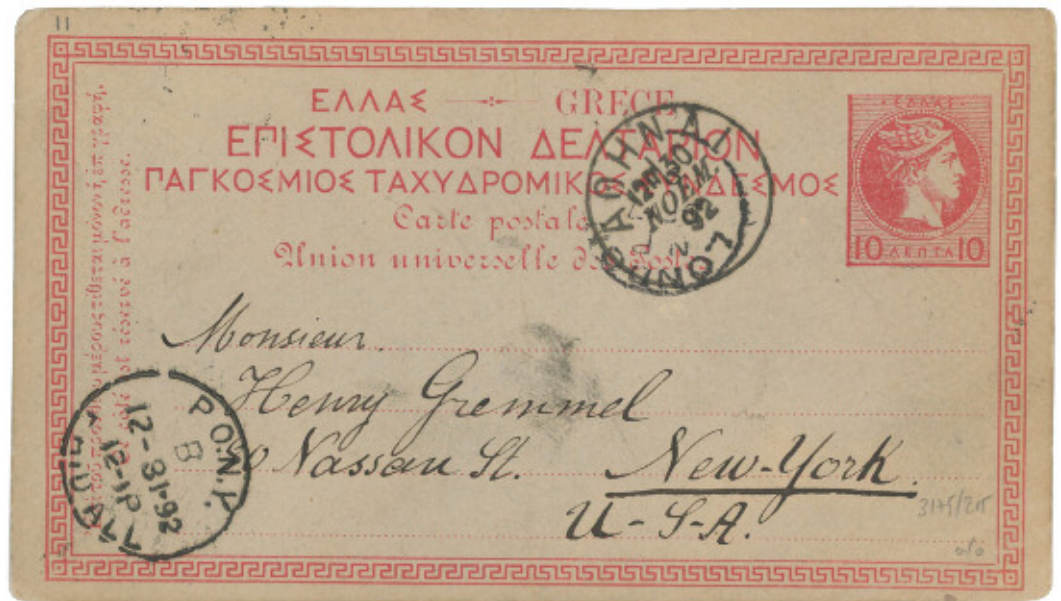 11
ΕΛΛΑΣ GRECE
ΕΠΙΣΤΟΛΙΚΟΝ ΔΕΛΤΑΡΙΟΝ
ΠΑΓΚΟΣΜΙΟΣ ΤΑΧΥΔΡΟΜΙΚΟΣ ΣΥΝΔΕΣΜΟΣ
Carte postale
Union universelle des Postes
ΕΛΛΑΣ
10 ΛΕΠΤΑ 10
ΑΘΗΝΑΙ
12 Μ 30
ΝΟΕΜ
92
Monsieur
Henry Gremmel
Nassau St. New-York.
U-S-A.
P.O.N.Y.
B
12-31-92
12-1P
réservé à l'adresse.